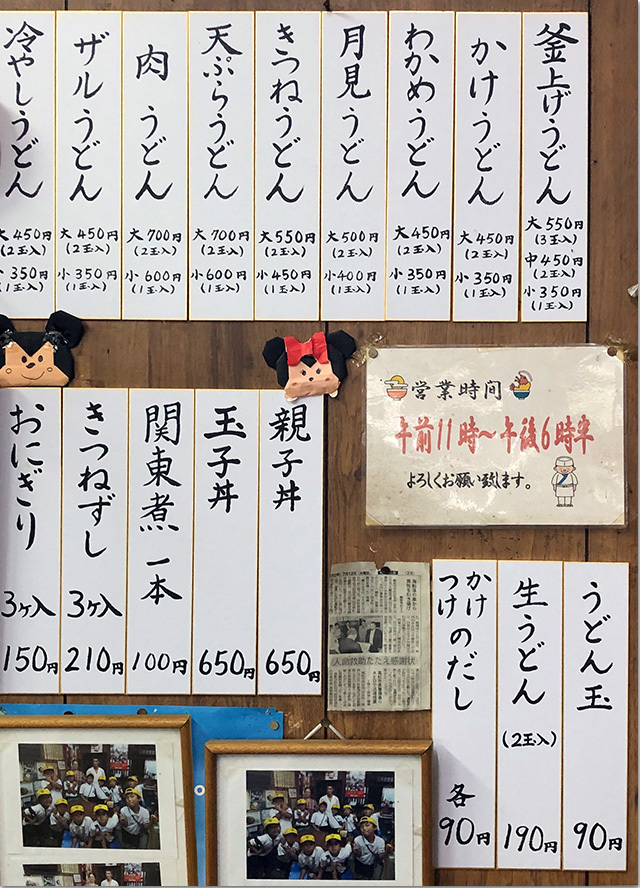 釜上げうどん
大550円
(3玉入)
中450円
(2玉入)
小350円
(1玉入)
かけうどん
大450円
(2玉入)
小350円
(1玉入)
わかめうどん
大450円
(2玉入)
小350円
(1玉入)
月見うどん
大500円
(2玉入)
小400円
(1玉入)
きつねうどん
大550円
(2玉入)
小450円
(1玉入)
天ぷらうどん
大700円
(2玉入)
小600円
(1玉入)
肉うどん
大700円
(2玉入)
小600円
(1玉入)
ザルうどん
大450円
(2玉入)
小350円
(1玉入)
冷やしうどん
大450円
(2玉入)
小350円
(1玉入)
営業時間
午前11時~午後6時半
よろしくお願い致します。
親子丼
650円
玉子丼
650円
関東煮 一本
100円
きつねずし
3ケ入
210円
おにぎり
3ケ入
150円
人命救助たたえ感謝状
うどん玉
90円
生うどん
(2玉入)
190円
かけ
つけのだし
各
90円